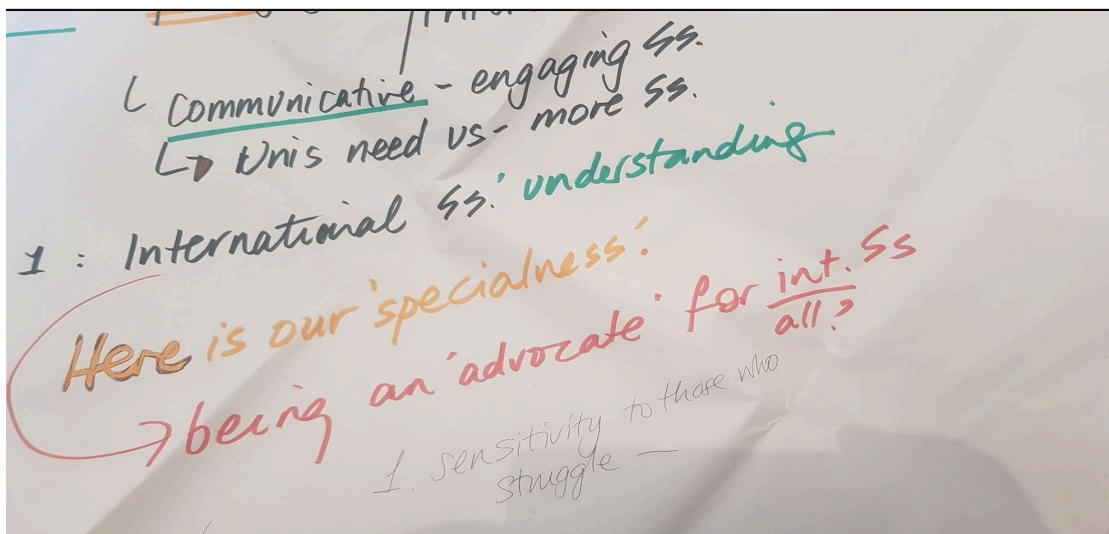 Communicative - engaging Ss.
↳ Unis need us - more Ss.
1 : International Ss: understanding
Here is our 'specialness':
→ being an 'advocate' for int. Ss
all?
1. sensitivity to those who
struggle —